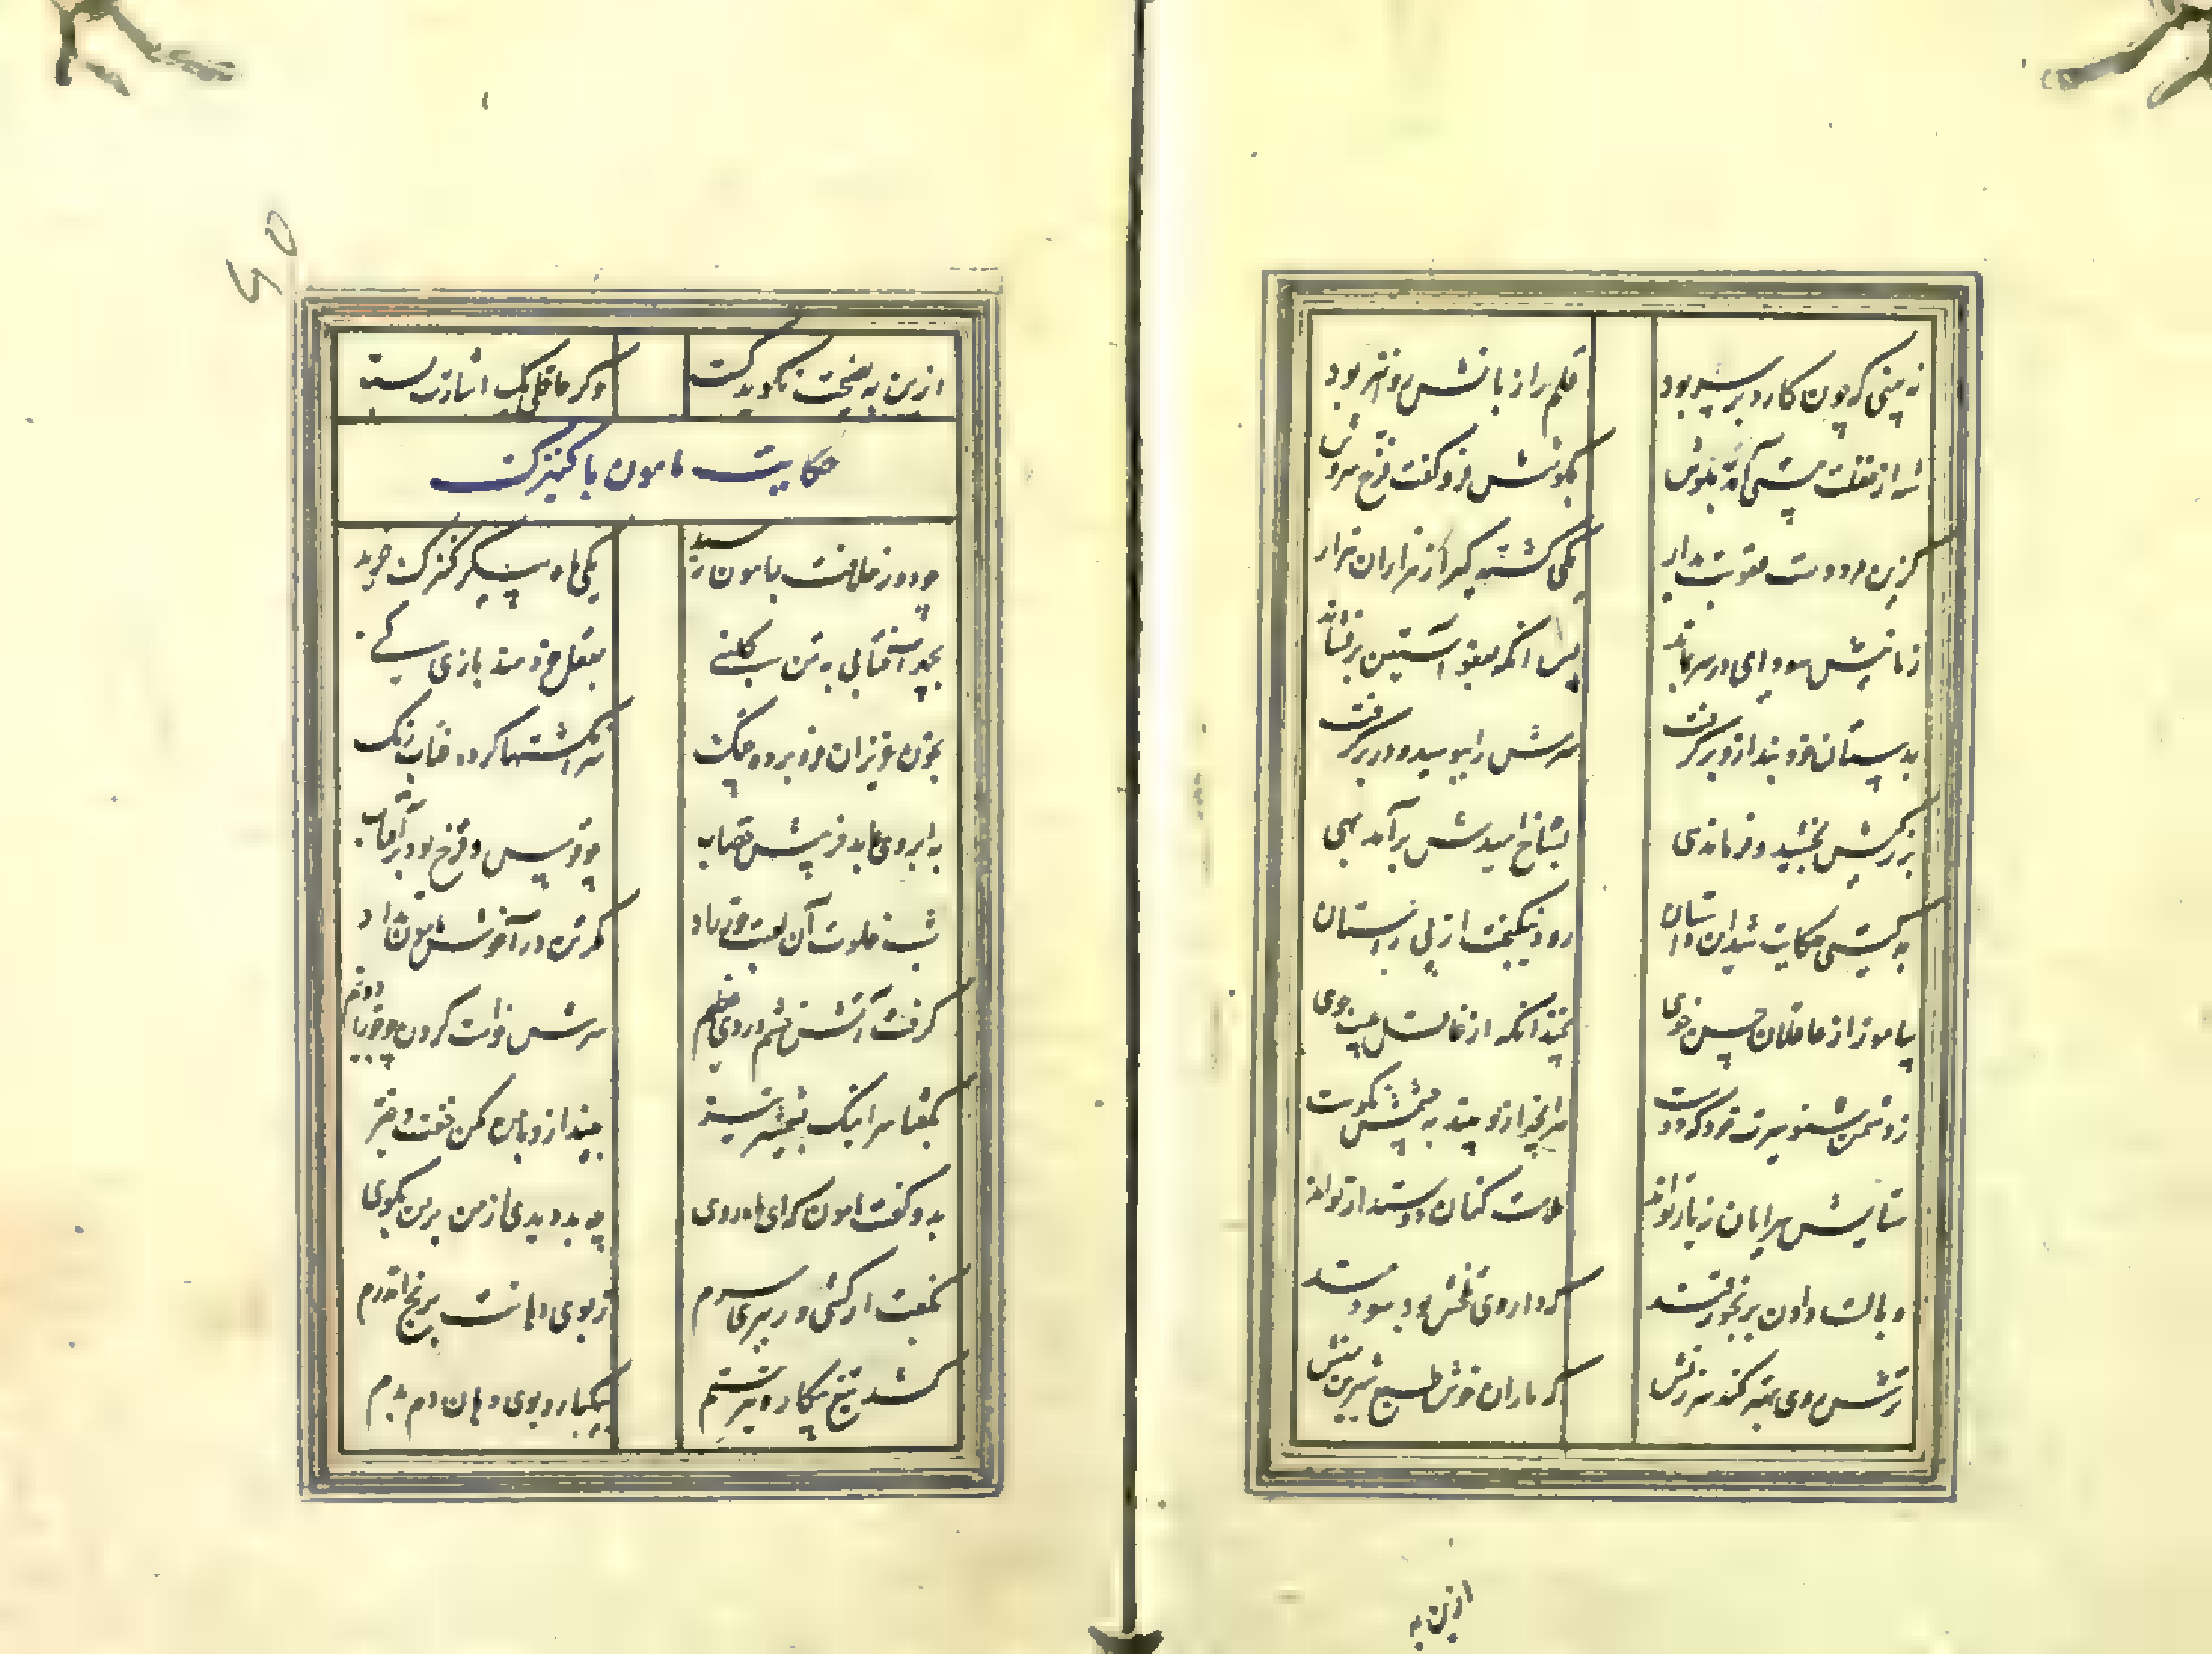 نه بینی که چون کارد بر سر بود قلم را زبانش روانتر بود
شه از غفلت مستی آمد بهوش بگوشش فرو گفت فرخ سروش
کزین مرد دست عقوبت بدار یکی کشته گیر از هزاران هزار
زمانیش سودای در سر بماند پس آنگه بعفو آستین برفشاند
بدستان خود بند ازو برگرفت سرش را ببوسید و در بر گرفت
بزرگیش بخشید و فرماندهی بشاخ امیدش برآمد بهی
به گیتی حکایت شد این داستان رود نیکبخت از پی راستان
بیاموز از عاقلان حسن خوی نه چندانکه از غافل عیب جوی
ز دشمن شنو سیرت خود که دوست هر آنچ از تو بیند به چشمش نکوست
ستایش سرایان نه یار تواند ملامت کنان دوستدار تواند
وبالست دادن برنجور قند که داروی تلخش بود سودمند
ترش روی بهتر کند سرزنش که یاران خوش طبع شیرین منش
ازین به
ازین به نصیحت نگوید کست وگر عاقلی یک اشارت بست
حکایت مامون با کنیزک
چو دور خلافت بمامون رسید یکی ماه پیکر کنیزک خرید
بچهر آفتابی به تن گلبنی بعقل خردمند بازی کنی
بخون عزیزان فرو برده چنگ سر انگشتها کرده عناب رنگ
به ابروی عابد فریبش خضاب چو قوس و قزح بود بر آفتاب
شب خلوت آن لعبت حور زاد مگر تن در آغوش مامون نداد
گرفت آتش خشم در وی عظیم سرش خواست کردن چو جوزا دو نیم
بگفتا سر اینک بشمشیر تیز بینداز و با من مکن خفت و خیز
بدو گفت مامون که ای ماه روی چه بد دیدی از من بر من بگوی
بگفت ار کشی ور ببری سرم ز بوی دهانت برنج اندرم
کشد تیغ پیکار و تیر ستم بیکبار و بوی دهان دم بدم